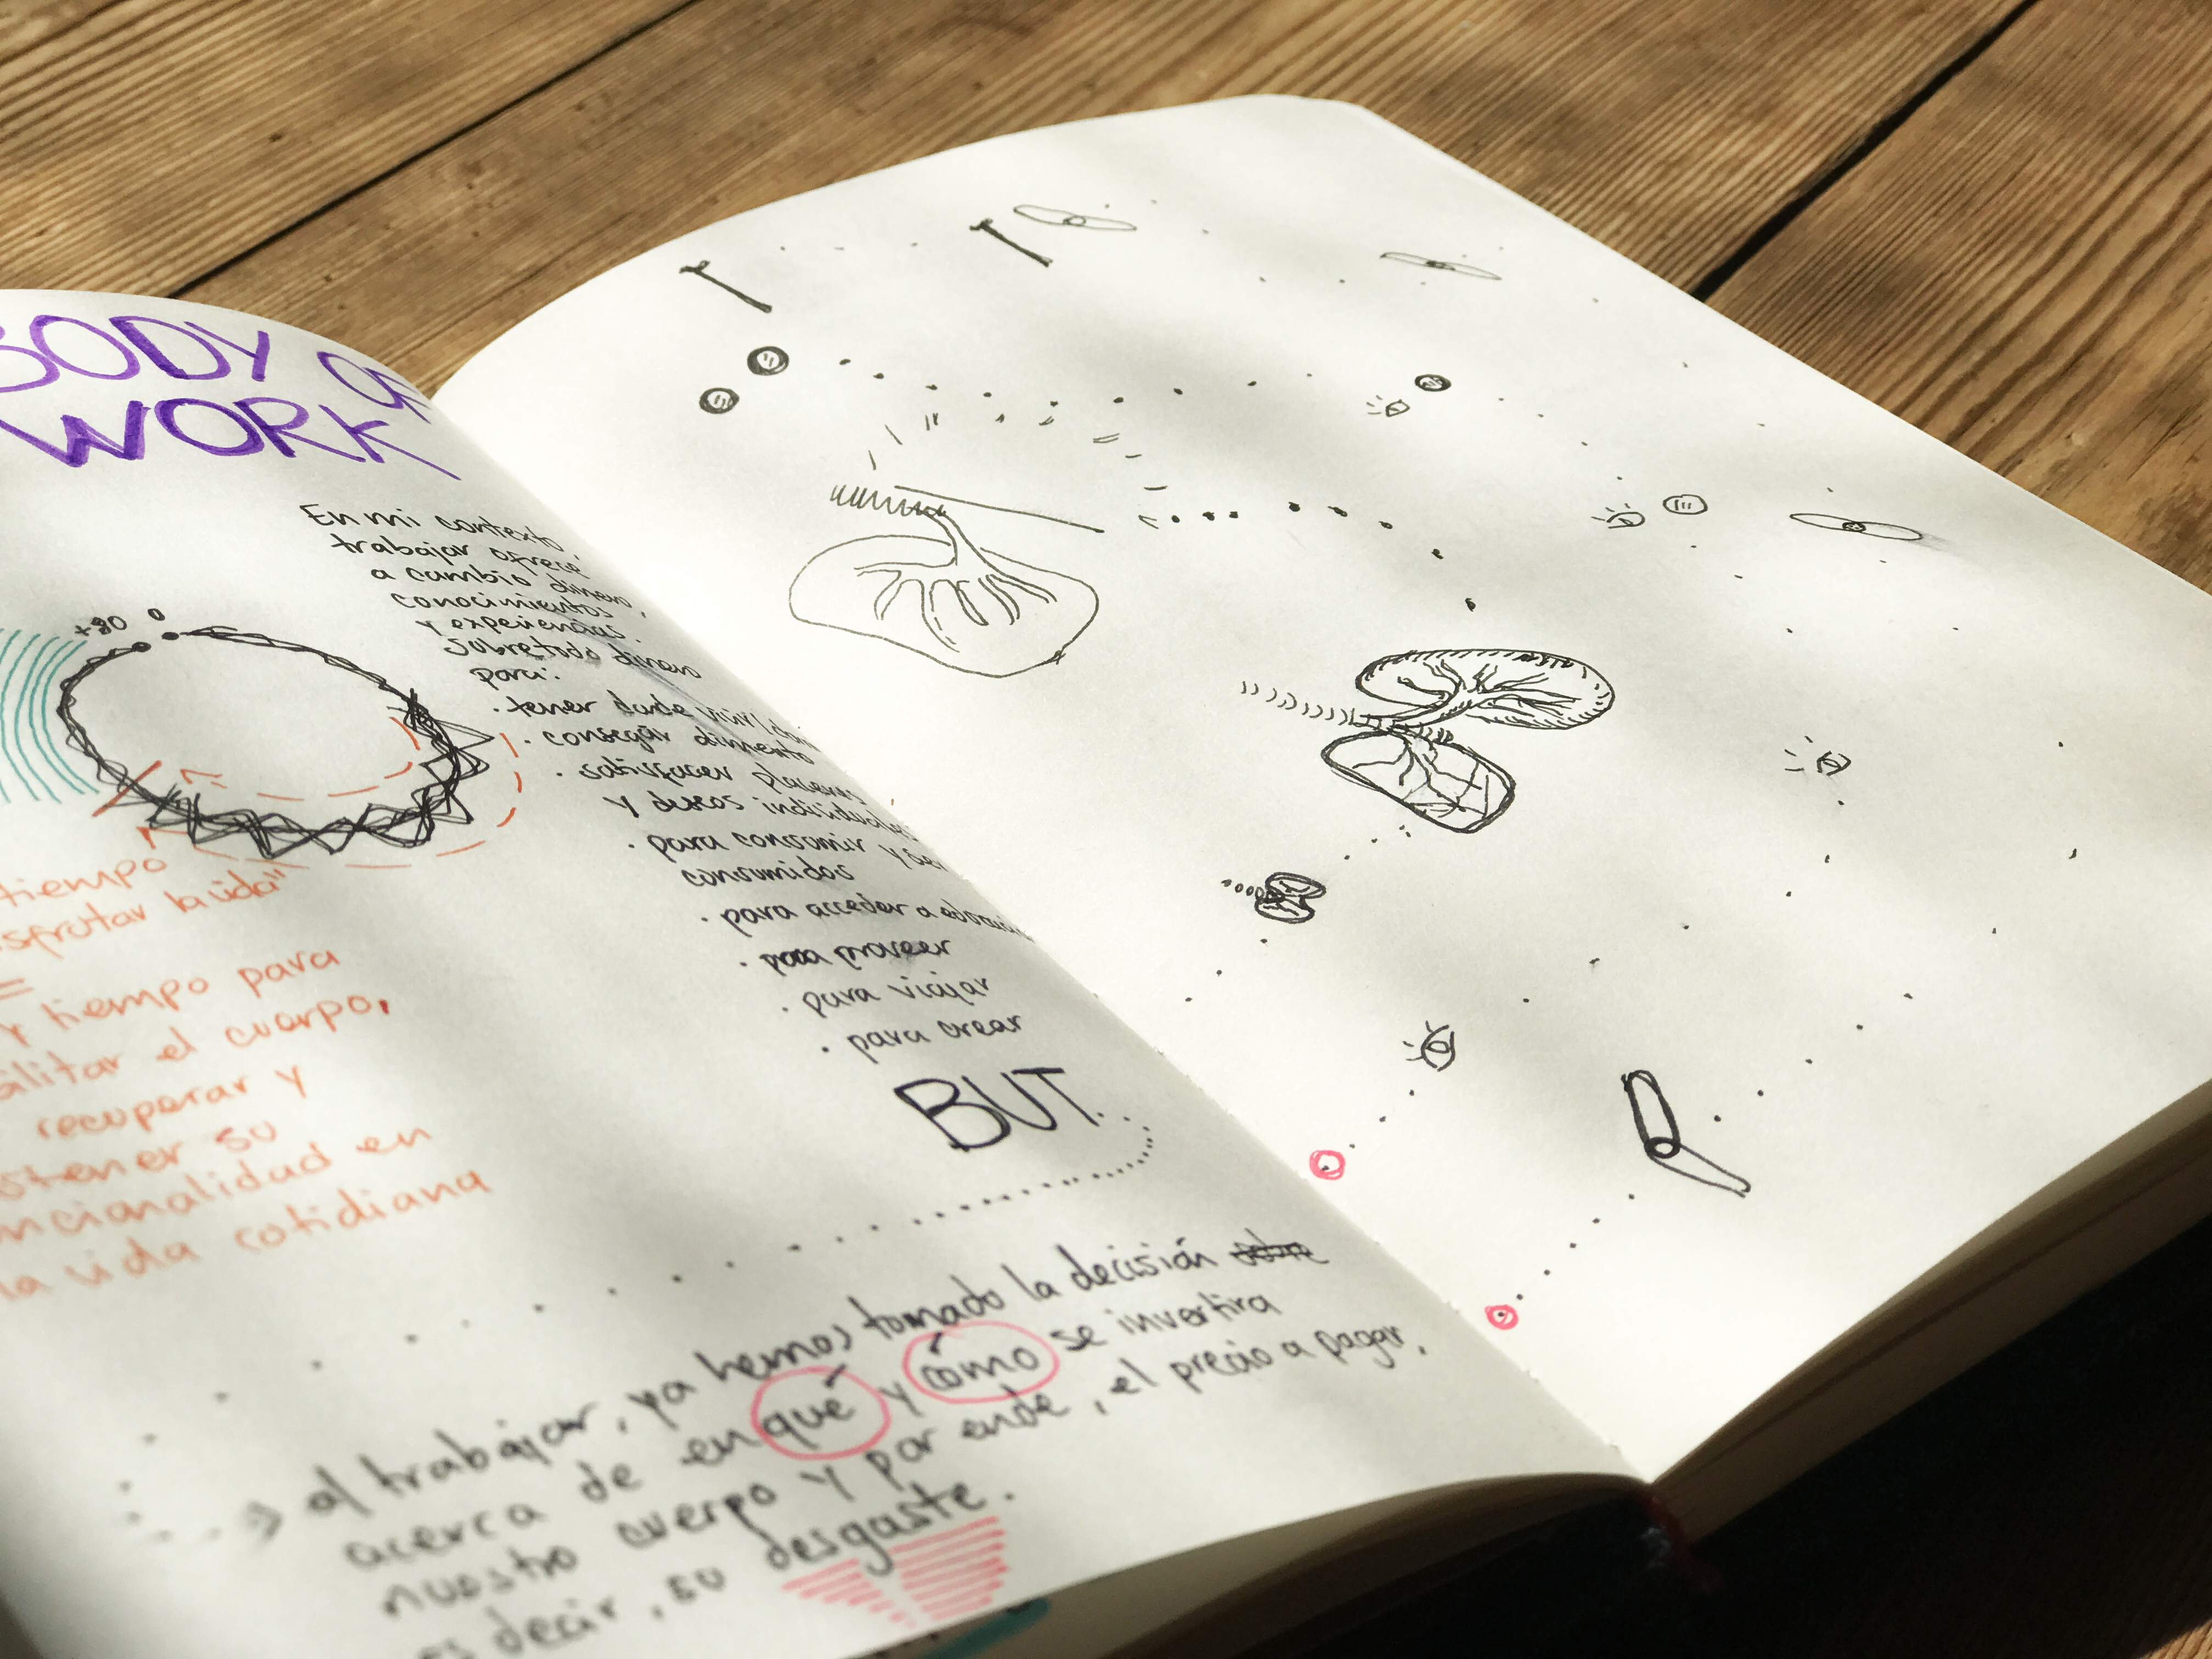 BODY OF
WORK
En mi contexto,
trabajar ofrece
a cambio dinero,
conocimientos
y experiencias.
Sobretodo dinero
para:
· tener donde vivir
· conseguir alimento
· satisfacer placeres
y deseos individuales
· para consumir y ser
consumidos
· para acceder a
· para proveer
· para viajar
· para crear
BUT
+90 0
tiempo
la vida"
=
y tiempo para
el cuerpo,
recuperar y
su
en
la vida cotidiana
al trabajar, ya hemos tomado la decisión
acerca de en qué y cómo se invertira
nuestro cuerpo y por ende, el precio a pagar,
es decir, su desgaste.